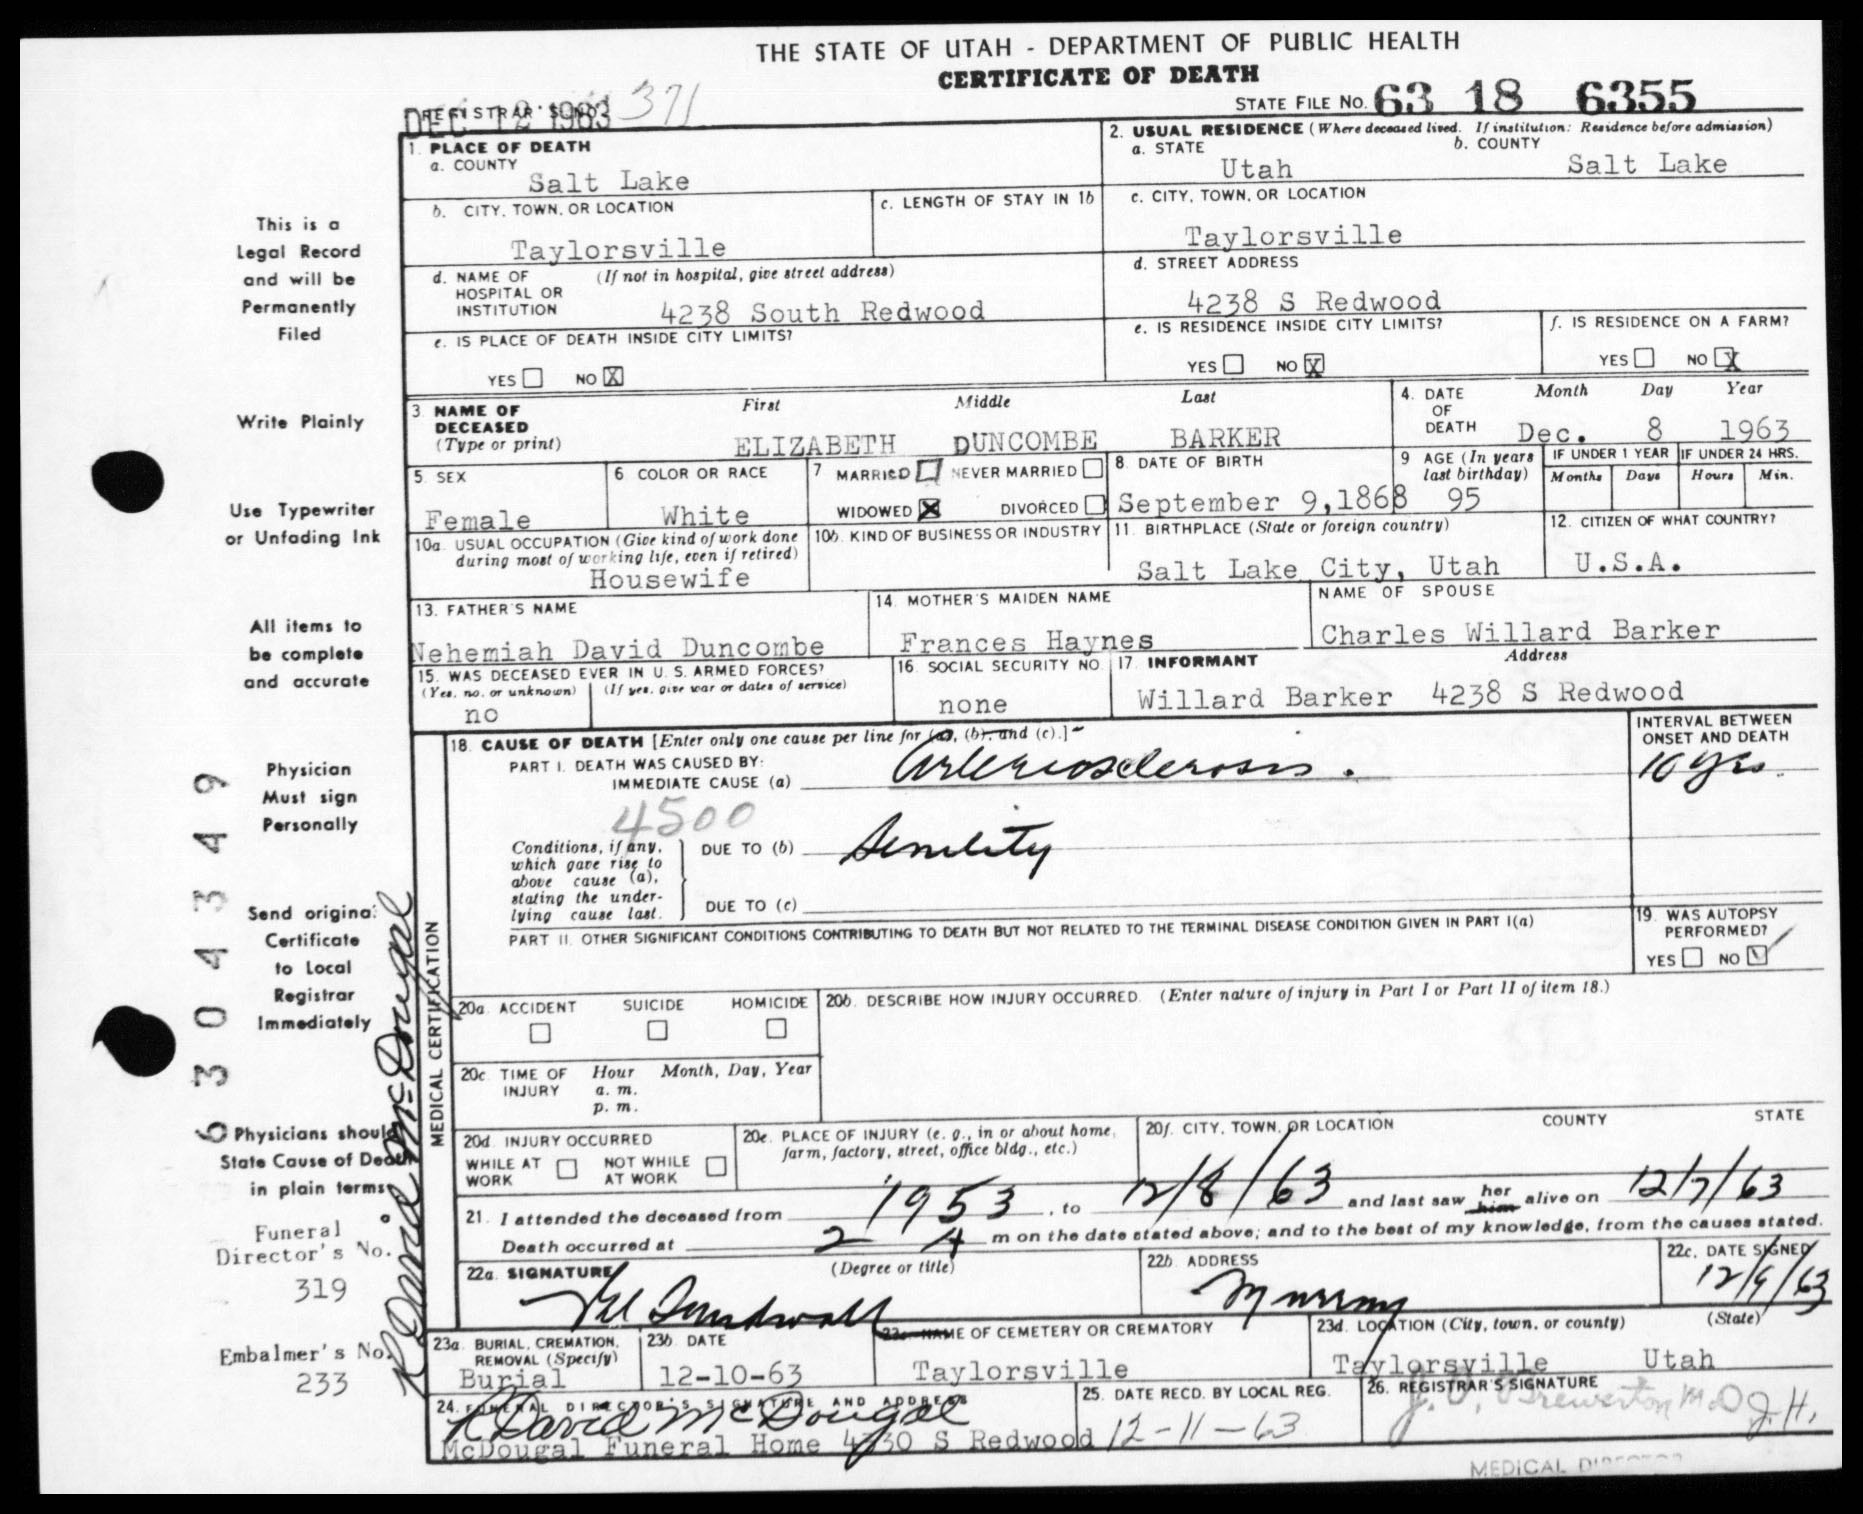 THE STATE OF UTAH - DEPARTMENT OF PUBLIC HEALTH
CERTIFICATE OF DEATH
REGISTRAR'S NO. 371
DEC 12 1963
STATE FILE NO. 63 18 6355
1. PLACE OF DEATH
a. COUNTY
Salt Lake
2. USUAL RESIDENCE (Where deceased lived. If institution: Residence before admission)
a. STATE
Utah
b. COUNTY
Salt Lake
b. CITY, TOWN, OR LOCATION
Taylorsville
c. LENGTH OF STAY IN 1b
c. CITY, TOWN, OR LOCATION
Taylorsville
d. NAME OF HOSPITAL OR INSTITUTION (If not in hospital, give street address)
4238 South Redwood
d. STREET ADDRESS
4238 S Redwood
e. IS PLACE OF DEATH INSIDE CITY LIMITS?
YES NO X
e. IS RESIDENCE INSIDE CITY LIMITS?
YES NO X
f. IS RESIDENCE ON A FARM?
YES NO X
3. NAME OF DECEASED (Type or print)
First Middle Last
ELIZABETH DUNCOMBE BARKER
4. DATE OF DEATH
Month Day Year
Dec. 8 1963
5. SEX
Female
6 COLOR OR RACE
White
7 MARRIED NEVER MARRIED
WIDOWED X DIVORCED
8. DATE OF BIRTH
September 9,1868
9 AGE (In years last birthday)
95
IF UNDER 1 YEAR
Months Days
IF UNDER 24 HRS.
Hours Min.
10a. USUAL OCCUPATION (Give kind of work done during most of working life, even if retired)
Housewife
10b. KIND OF BUSINESS OR INDUSTRY
11. BIRTHPLACE (State or foreign country)
Salt Lake City, Utah
12. CITIZEN OF WHAT COUNTRY?
U.S.A.
13. FATHER'S NAME
Nehemiah David Duncombe
14. MOTHER'S MAIDEN NAME
Frances Haynes
NAME OF SPOUSE
Charles Willard Barker
15. WAS DECEASED EVER IN U. S. ARMED FORCES?
(Yes, no, or unknown) (If yes, give war or dates of service)
no
16. SOCIAL SECURITY NO.
none
17. INFORMANT Address
Willard Barker 4238 S Redwood
18. CAUSE OF DEATH [Enter only one cause per line for (a), (b), and (c).]
PART I. DEATH WAS CAUSED BY:
IMMEDIATE CAUSE (a) Arteriosclerosis.
INTERVAL BETWEEN ONSET AND DEATH
10 yrs.
4500
Conditions, if any, which gave rise to above cause (a), stating the underlying cause last.
DUE TO (b) Senility
DUE TO (c)
PART II. OTHER SIGNIFICANT CONDITIONS CONTRIBUTING TO DEATH BUT NOT RELATED TO THE TERMINAL DISEASE CONDITION GIVEN IN PART I(a)
19. WAS AUTOPSY PERFORMED?
YES NO ✓
MEDICAL CERTIFICATION
20a. ACCIDENT SUICIDE HOMICIDE
20b. DESCRIBE HOW INJURY OCCURRED. (Enter nature of injury in Part I or Part II of item 18.)
20c. TIME OF INJURY Hour Month, Day, Year
a. m.
p. m.
20d. INJURY OCCURRED
WHILE AT WORK NOT WHILE AT WORK
20e. PLACE OF INJURY (e. g., in or about home, farm, factory, street, office bldg., etc.)
20f. CITY, TOWN, OR LOCATION COUNTY STATE
21. I attended the deceased from 1953, to 12/8/63 and last saw her him alive on 12/7/63
Death occurred at 2 A m on the date stated above; and to the best of my knowledge, from the causes stated.
22a. SIGNATURE (Degree or title)
Sundwall
22b. ADDRESS
Murray
22c. DATE SIGNED
12/9/63
23a. BURIAL, CREMATION, REMOVAL (Specify)
Burial
23b. DATE
12-10-63
23c. NAME OF CEMETERY OR CREMATORY
Taylorsville
23d. LOCATION (City, town, or county) (State)
Taylorsville Utah
24. FUNERAL DIRECTOR'S SIGNATURE AND ADDRESS
R David McDougal
McDougal Funeral Home 4330 S Redwood
25. DATE RECD. BY LOCAL REG.
12-11-63
26. REGISTRAR'S SIGNATURE
Brewerton M.D. J.H.
MEDICAL DIRECTOR
This is a
Legal Record
and will be
Permanently
Filed
Write Plainly
Use Typewriter
or Unfading Ink
All items to
be complete
and accurate
Physician
Must sign
Personally
Send original
Certificate
to Local
Registrar
Immediately
Physicians should
State Cause of Death
in plain terms
Funeral
Director's No.
319
Embalmer's No.
233
6304349
R David McDougal